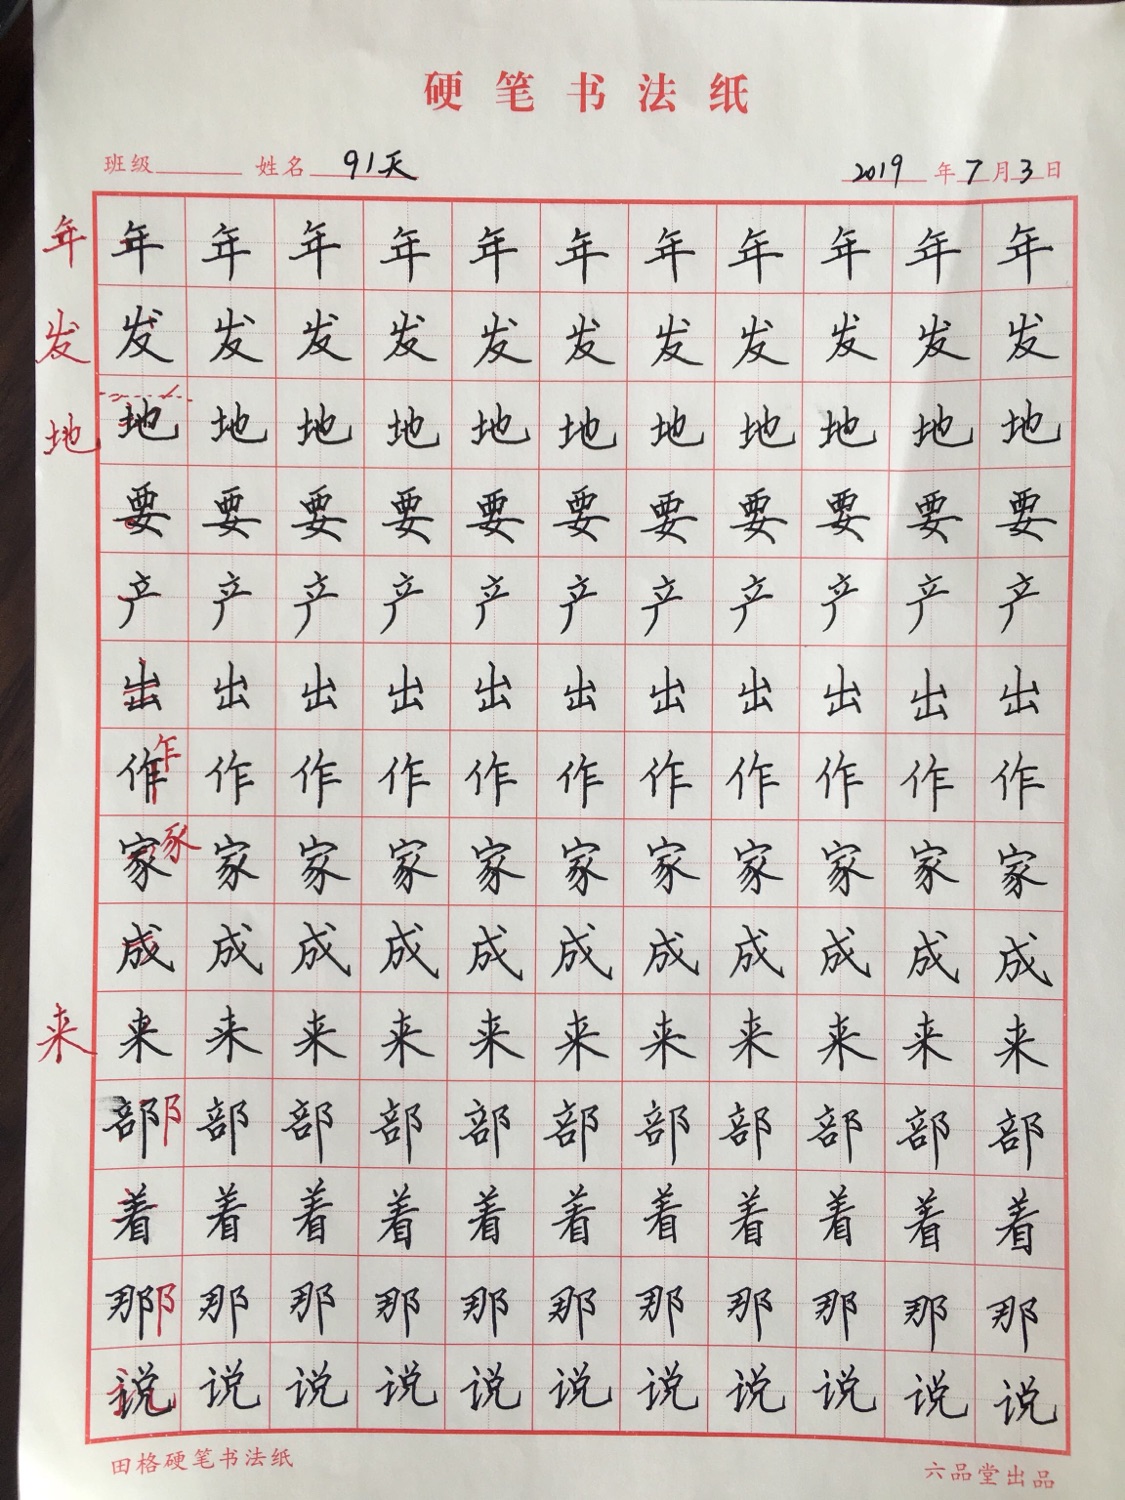 硬笔书法纸
班级 姓名 91天 2019年7月3日
年 年 年 年 年 年 年 年 年 年 年 年
发 发 发 发 发 发 发 发 发 发 发 发
地 地 地 地 地 地 地 地 地 地 地 地
要 要 要 要 要 要 要 要 要 要 要
产 产 产 产 产 产 产 产 产 产 产
出 出 出 出 出 出 出 出 出 出 出
作 乍 作 作 作 作 作 作 作 作 作 作
家 豕 家 家 家 家 家 家 家 家 家 家
成 成 成 成 成 成 成 成 成 成 成
来 来 来 来 来 来 来 来 来 来 来 来
部 阝 部 部 部 部 部 部 部 部 部 部
着 着 着 着 着 着 着 着 着 着 着
那 阝 那 那 那 那 那 那 那 那 那 那
说 说 说 说 说 说 说 说 说 说 说
田格硬笔书法纸 六品堂出品